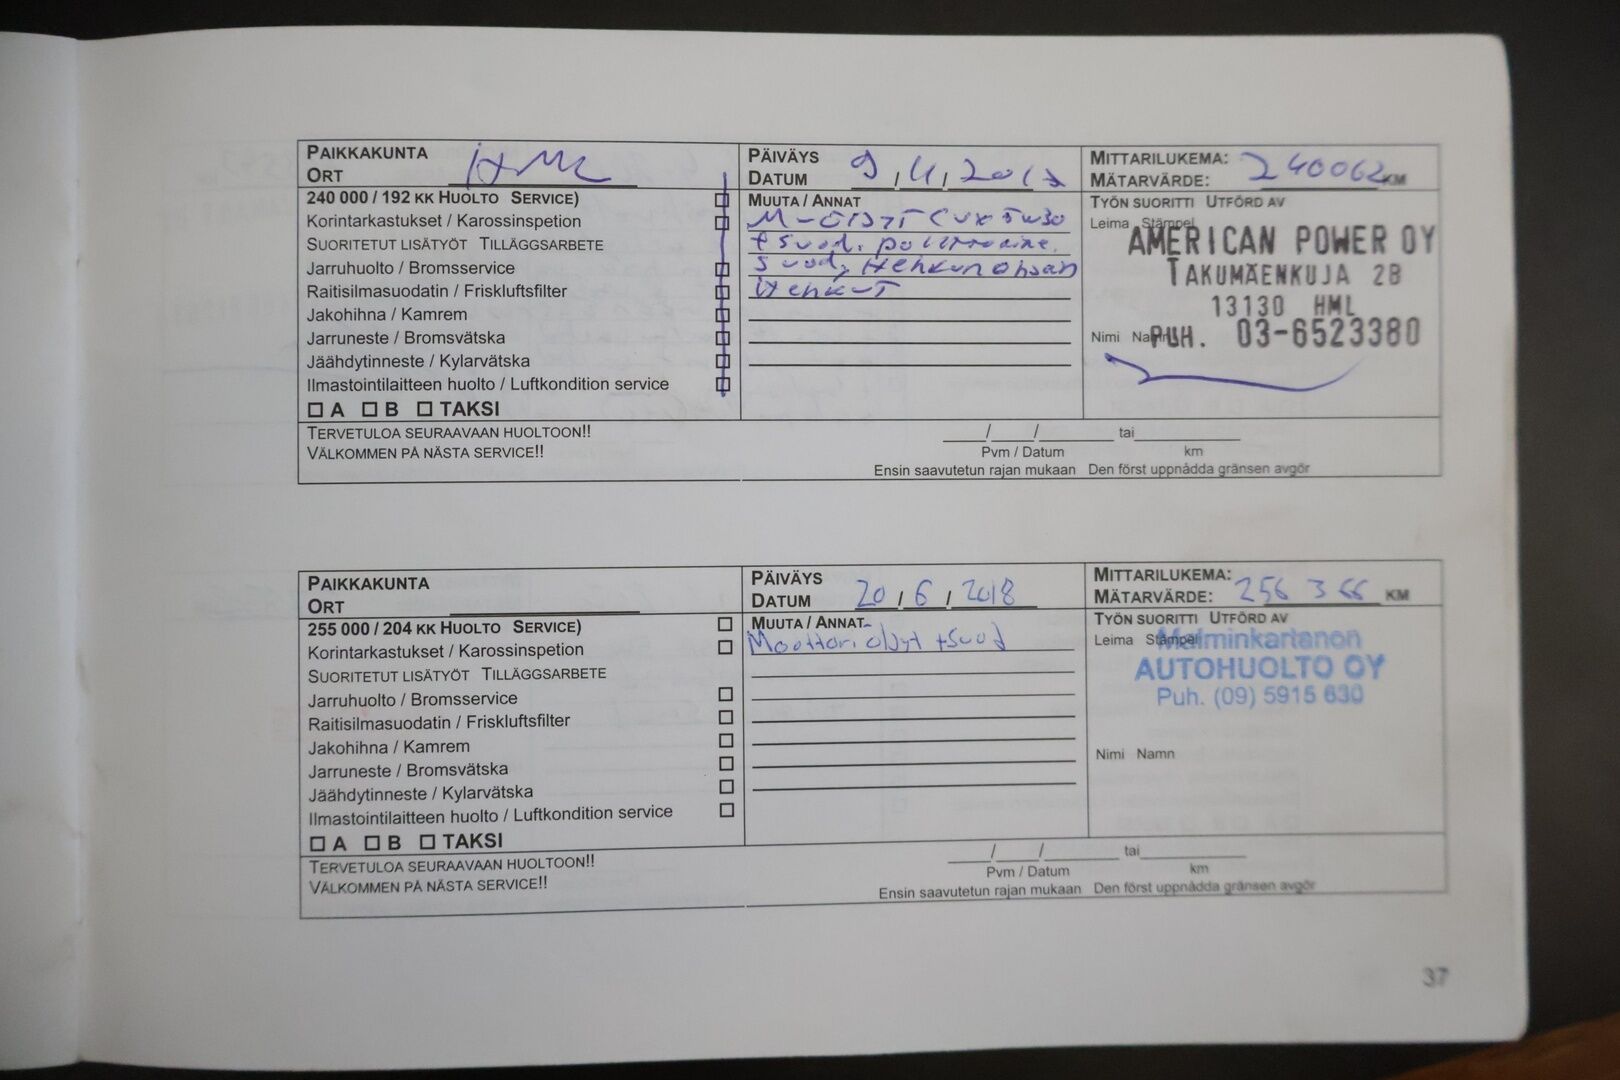 PAIKKAKUNTA
ORT HML
PÄIVÄYS
DATUM 9, 4, 2017
MITTARILUKEMA:
MÄTARVÄRDE: 240062 KM
240 000 / 192 KK HUOLTO SERVICE)
Korintarkastukset / Karossinspetion
SUORITETUT LISÄTYÖT TILLÄGGSARBETE
Jarruhuolto / Bromsservice
Raitisilmasuodatin / Friskluftsfilter
Jakohihna / Kamrem
Jarruneste / Bromsvätska
Jäähdytinneste / Kylarvätska
Ilmastointilaitteen huolto / Luftkondition service
A B TAKSI
MUUTA / ANNAT
M-ÖLJYT 5W30
+ suod. polttoaine.
suod, Hehkunohjain
Hehkut
TYÖN SUORITTI UTFÖRD AV
Leima Stämpel
AMERICAN POWER OY
TAKUMÄENKUJA 2B
13130 HML
Nimi Namn
PUH. 03-6523380
TERVETULOA SEURAAVAAN HUOLTOON!!
VÄLKOMMEN PÅ NÄSTA SERVICE!!
___/___/______ tai________
Pvm / Datum km
Ensin saavutetun rajan mukaan Den först uppnådda gränsen avgör
PAIKKAKUNTA
ORT
PÄIVÄYS
DATUM 20, 6, 2018
MITTARILUKEMA:
MÄTARVÄRDE: 256 366 KM
255 000 / 204 KK HUOLTO SERVICE)
Korintarkastukset / Karossinspetion
SUORITETUT LISÄTYÖT TILLÄGGSARBETE
Jarruhuolto / Bromsservice
Raitisilmasuodatin / Friskluftsfilter
Jakohihna / Kamrem
Jarruneste / Bromsvätska
Jäähdytinneste / Kylarvätska
Ilmastointilaitteen huolto / Luftkondition service
A B TAKSI
MUUTA / ANNAT
Moottoriöljyt +suod
TYÖN SUORITTI UTFÖRD AV
Leima Stämpel
Malminkartanon
AUTOHUOLTO OY
Puh. (09) 5915 630
Nimi Namn
TERVETULOA SEURAAVAAN HUOLTOON!!
VÄLKOMMEN PÅ NÄSTA SERVICE!!
___/___/______ tai________
Pvm / Datum km
Ensin saavutetun rajan mukaan Den först uppnådda gränsen avgör
37